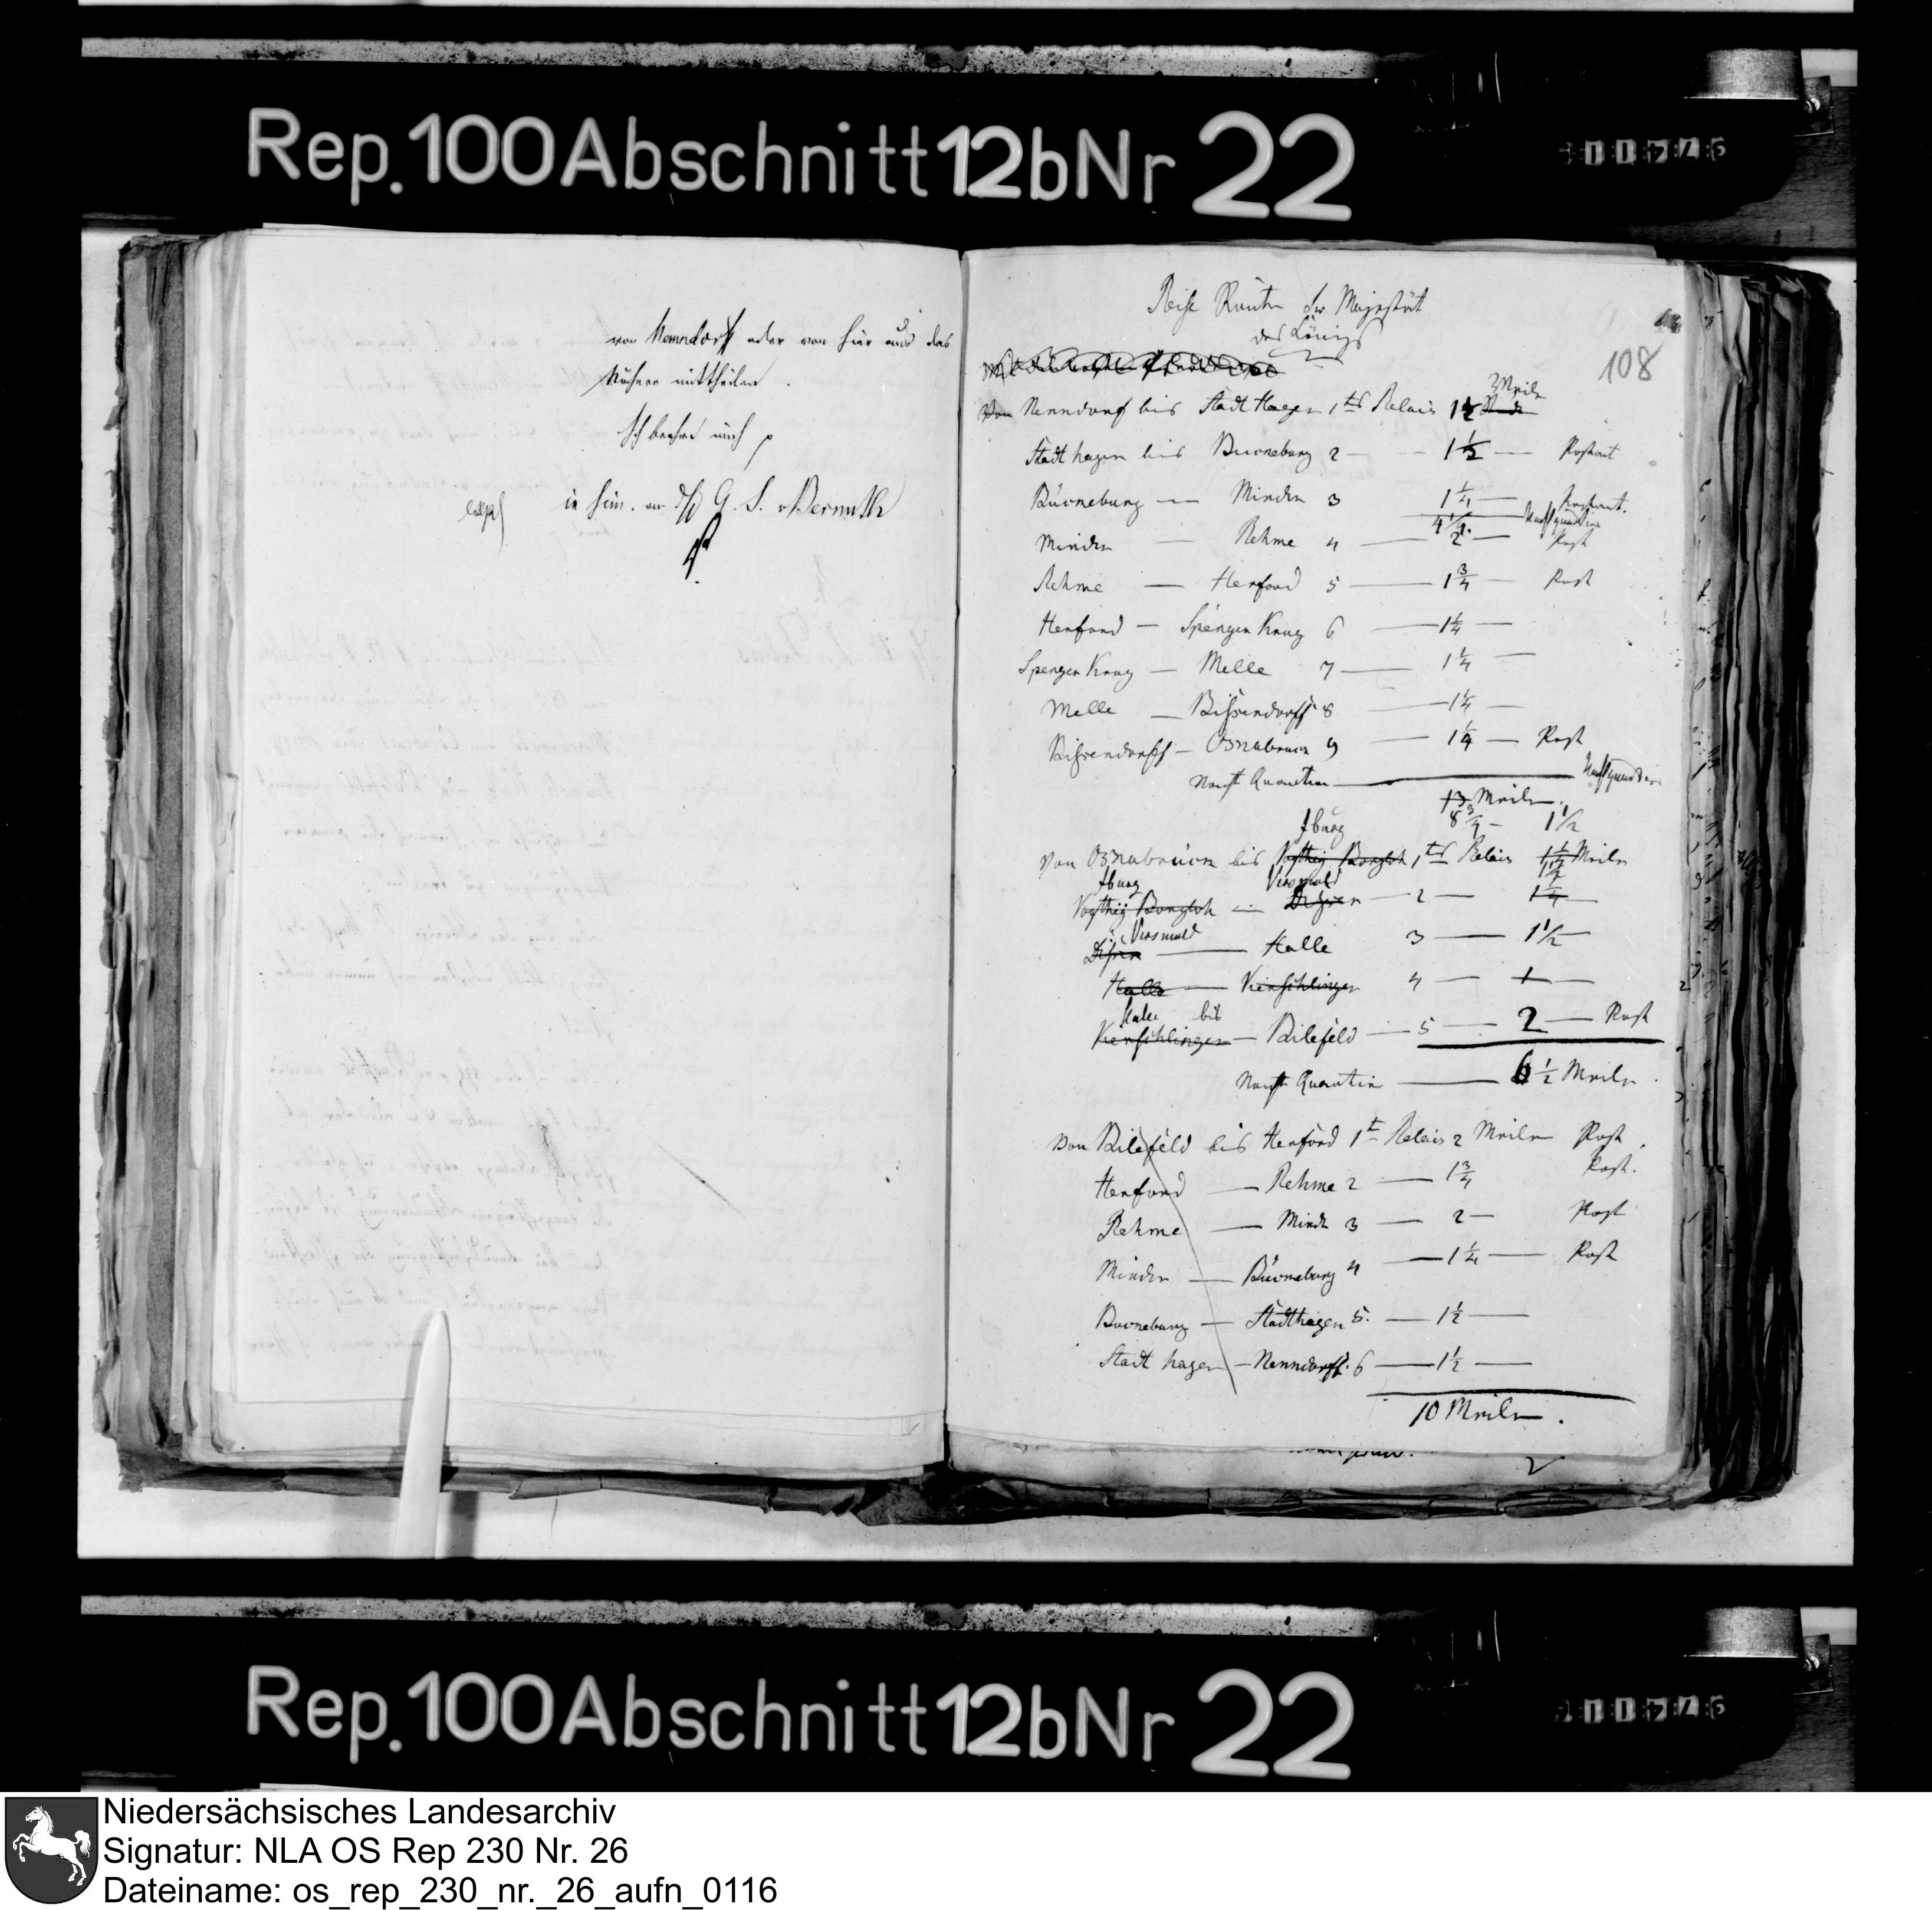 Rep. 100 Abschnitt 12b Nr 22
von Nenndorf oder von hier aus das
Nähere mittheilen.
Ich beehre mich p
in fin. an G. S. v Bernuth
Reise Route Sr Majestät
des Königs
108
Meilen
Von Nenndorf bis Stadthagen 1tes Relais 1½
Stadthagen bis Bückeburg 2 — 1½ —
Bückeburg — Minden 3 1¼ —
4¼
Minden — Rehme 4 — 2 — Post
Rehme — Herford 5 — 1¾ — Post
Herford — Spenger Krug 6 — 1¼ —
Spenger Krug — Melle 7 — 1¼ —
Melle — Bissendorff 8 — 1¼ —
Bissendorff — Osnabrück 9 — 1¼ — Post
Nacht Quartier —
13 Meilen.
8¾ — 1½
Iburg
Von Osnabrück bis Vogthey Borgloh 1tes Relais 1½ Meilen
Iburg Versmold
Vogthey Borgloh — Dissen — 2 — 1¼ —
Versmold
Dissen — Halle 3 — 1½ —
Halle — Vierschlingen 4 — 1 —
Halle bis
Vierschlingen — Bilefeld — 5 — 2 — Post
Nacht Quartier — 6½ Meilen.
Von Bilefeld bis Herford 1t Relais 2 Meilen Post.
Herford — Rehme 2 — 1¾ Post.
Rehme — Minden 3 — 2 — Post
Minden — Bückeburg 4 — 1¼ — Post
Bückeburg — Stadthagen 5. — 1½ —
Stadthagen — Nenndorff. 6 — 1½ —
10 Meilen.
Rep. 100 Abschnitt 12b Nr 22
Niedersächsisches Landesarchiv
Signatur: NLA OS Rep 230 Nr. 26
Dateiname: os_rep_230_nr._26_aufn_0116